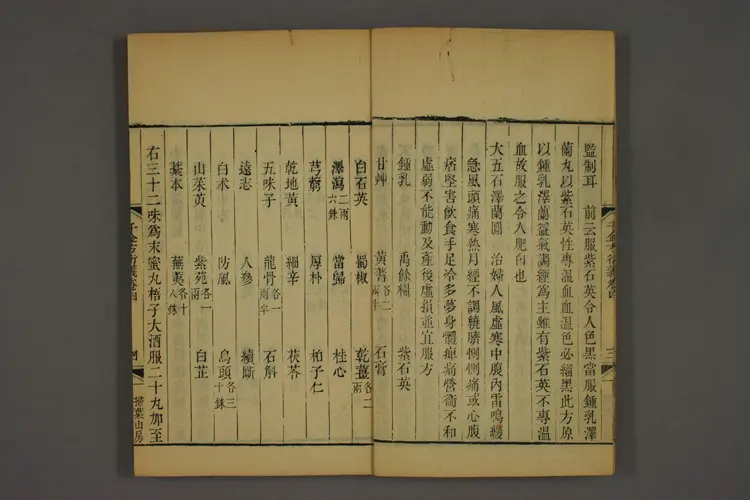 監制耳　前云服紫石英令人色黑當服鍾乳澤
蘭丸以紫石英性專溫血血溫色必緇黑此方原
以鍾乳澤蘭益氣調經爲主雖有紫石英不專溫
血故服之令人肥白也
大五石澤蘭圓　治婦人風虛寒中腹內雷鳴緩
急風頭痛寒熱月經不調繞臍惻惻痛或心腹
痞堅害飲食手足冷多夢身體痺痛營衞不和
虛弱不能動及產後虛損並宜服方
鍾乳　禹餘糧　紫石英
甘艸　黃蓍各二兩半　石膏
白石英　蜀椒　乾薑各二兩
澤瀉二兩六銖　當歸　桂心
芎藭　厚朴　柏子仁
乾地黃　細辛　茯苓
五味子　龍骨各一兩半　石斛
遠志　人參　續斷
白朮　防風　烏頭各三十銖
山茱萸　紫苑各一兩　白芷
藁本　蕪荑各十八銖
右三十二味爲末蜜丸梧子大酒服二十丸加至
千金方衍義卷四　四　掃葉山房